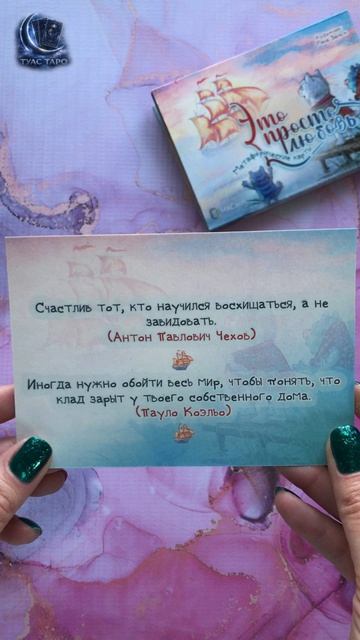 ТУАС ТАРО
Это
просто
любовь
Метафорические карты
Счастлив тот, кто научился восхищаться, а не
завидовать.
(Антон Павлович Чехов)
Иногда нужно обойти весь мир, чтобы понять, что
клад зарыт у твоего собственного дома.
(Пауло Коэльо)